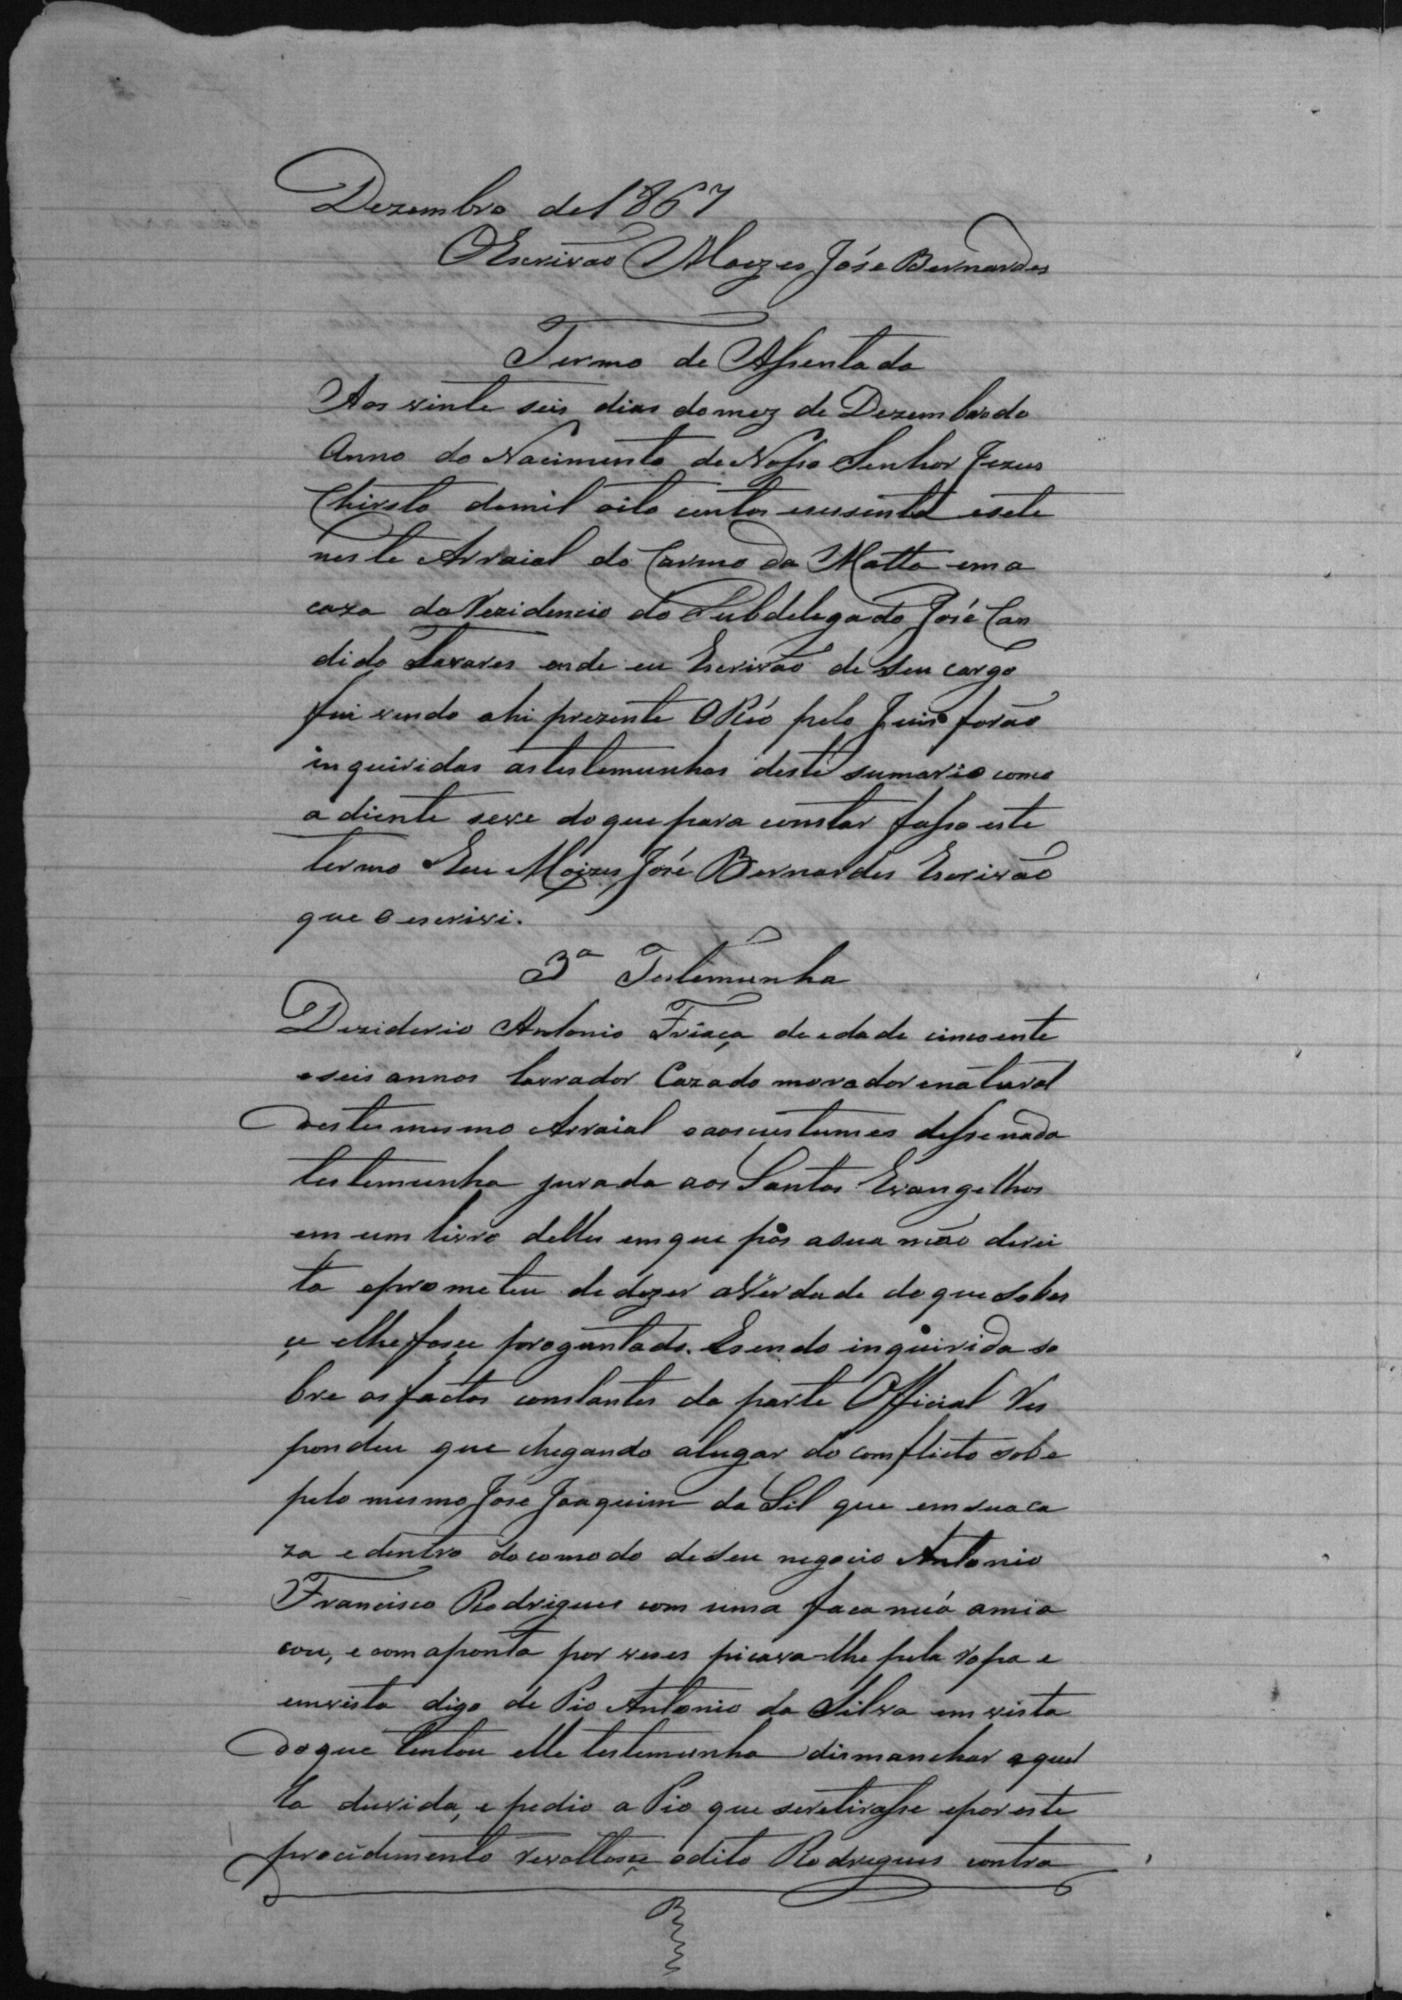 Dezembro de 1867
O Escrivão Moizes José Bernardes
Termo de Assentada
Aos vinte seis dias do mez de Dezembro do
Anno do Nacimento de Nosso Senhor Jezus
Christo de mil oito centos e secenta e sete
neste Arraial do Carmo da Matta em a
caza da Rezidencia do Subdelegado José Can
dido Tavares onde eu Escrivão de seu cargo
fui vendo ahi prezente O Réo pelo Juis forão
inqueridas as testemunhas deste sumario como
a diente seve do que para constar fasso este
termo Eu Moizes José Bernardes Escrivão
que o escrivi.
3ª Testemunha
Deziderio Antonio Friaça de edade cincoente
e seis annos lavrador Cazado morador e natural
deste mesmo Arraial e aos custumes disse nada
testemunha jurada aos Santos Evangelhos
em um livro delles em que pôs a sua mão derei
ta e prometeu de dizer a Verdade do que Soubes
çe e lhe fosse proguntado. E sendo inquirida so
bre os factos constantes da parte Official Res
pondeu que chegando a lugar do comflicto sobe
pelo mesmo José Joaquim da Sil que em sua ca
za e dentro do comodo de seu negocio Antonio
Francisco Rodrigues com uma faca nuá amia
cou, e com a ponta por veses picava-lhe pela ropa e
em vista digo de Pio Antonio da Silva em vista
do que tentou elle testemunha dismanchar aquel
la duvida, e pedio a Pio que se retirasse e por este
procidimento revoltouçe o dito Rodrigues contra